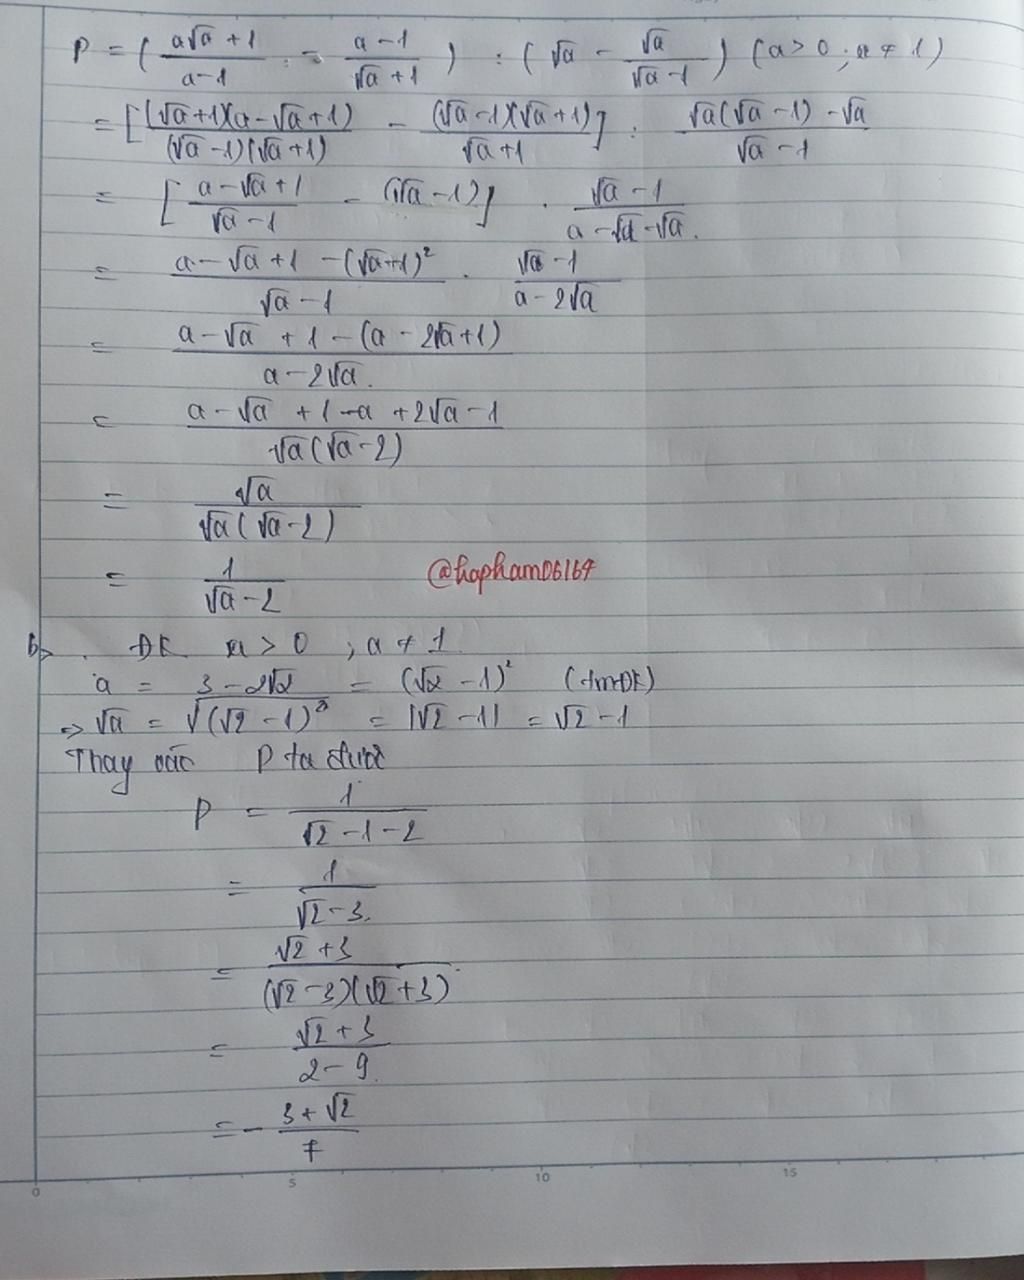 P = ( (a√a + 1)/(a - 1) - (a - 1)/(√a + 1) ) : ( √a - √a/(√a - 1) ) ( a > 0 ; a ≠ 1 )
= [ (√a+1)(a-√a+1)/(√a-1)(√a+1) - (√a-1)(√a+1)/(√a+1) ] : (√a(√a-1) -√a)/(√a-1)
= [ (a-√a+1)/(√a-1) - (√a-1) ] . (√a-1)/(a-√a-√a)
= (a-√a+1 -(√a+1)²)/(√a-1) . (√a-1)/(a-2√a)
= (a-√a + 1 - (a - 2√a+1))/(a-2√a)
= (a-√a + 1 -a + 2√a - 1)/(√a(√a-2))
= √a/(√a(√a-2))
= 1/(√a-2) @hapham06167
b, ĐK a > 0 , a ≠ 1
a = 3-2√2 = (√2 -1)² (tmĐK)
=> √a = √(√2 -1)² = |√2 -1| = √2 -1
Thay vào P ta được
P = 1/(√2 -1-2)
= 1/(√2-3)
= (√2+3)/((√2-3)(√2+3))
= (√2+3)/(2-9)
= - (3+√2)/7
0 5 10 15